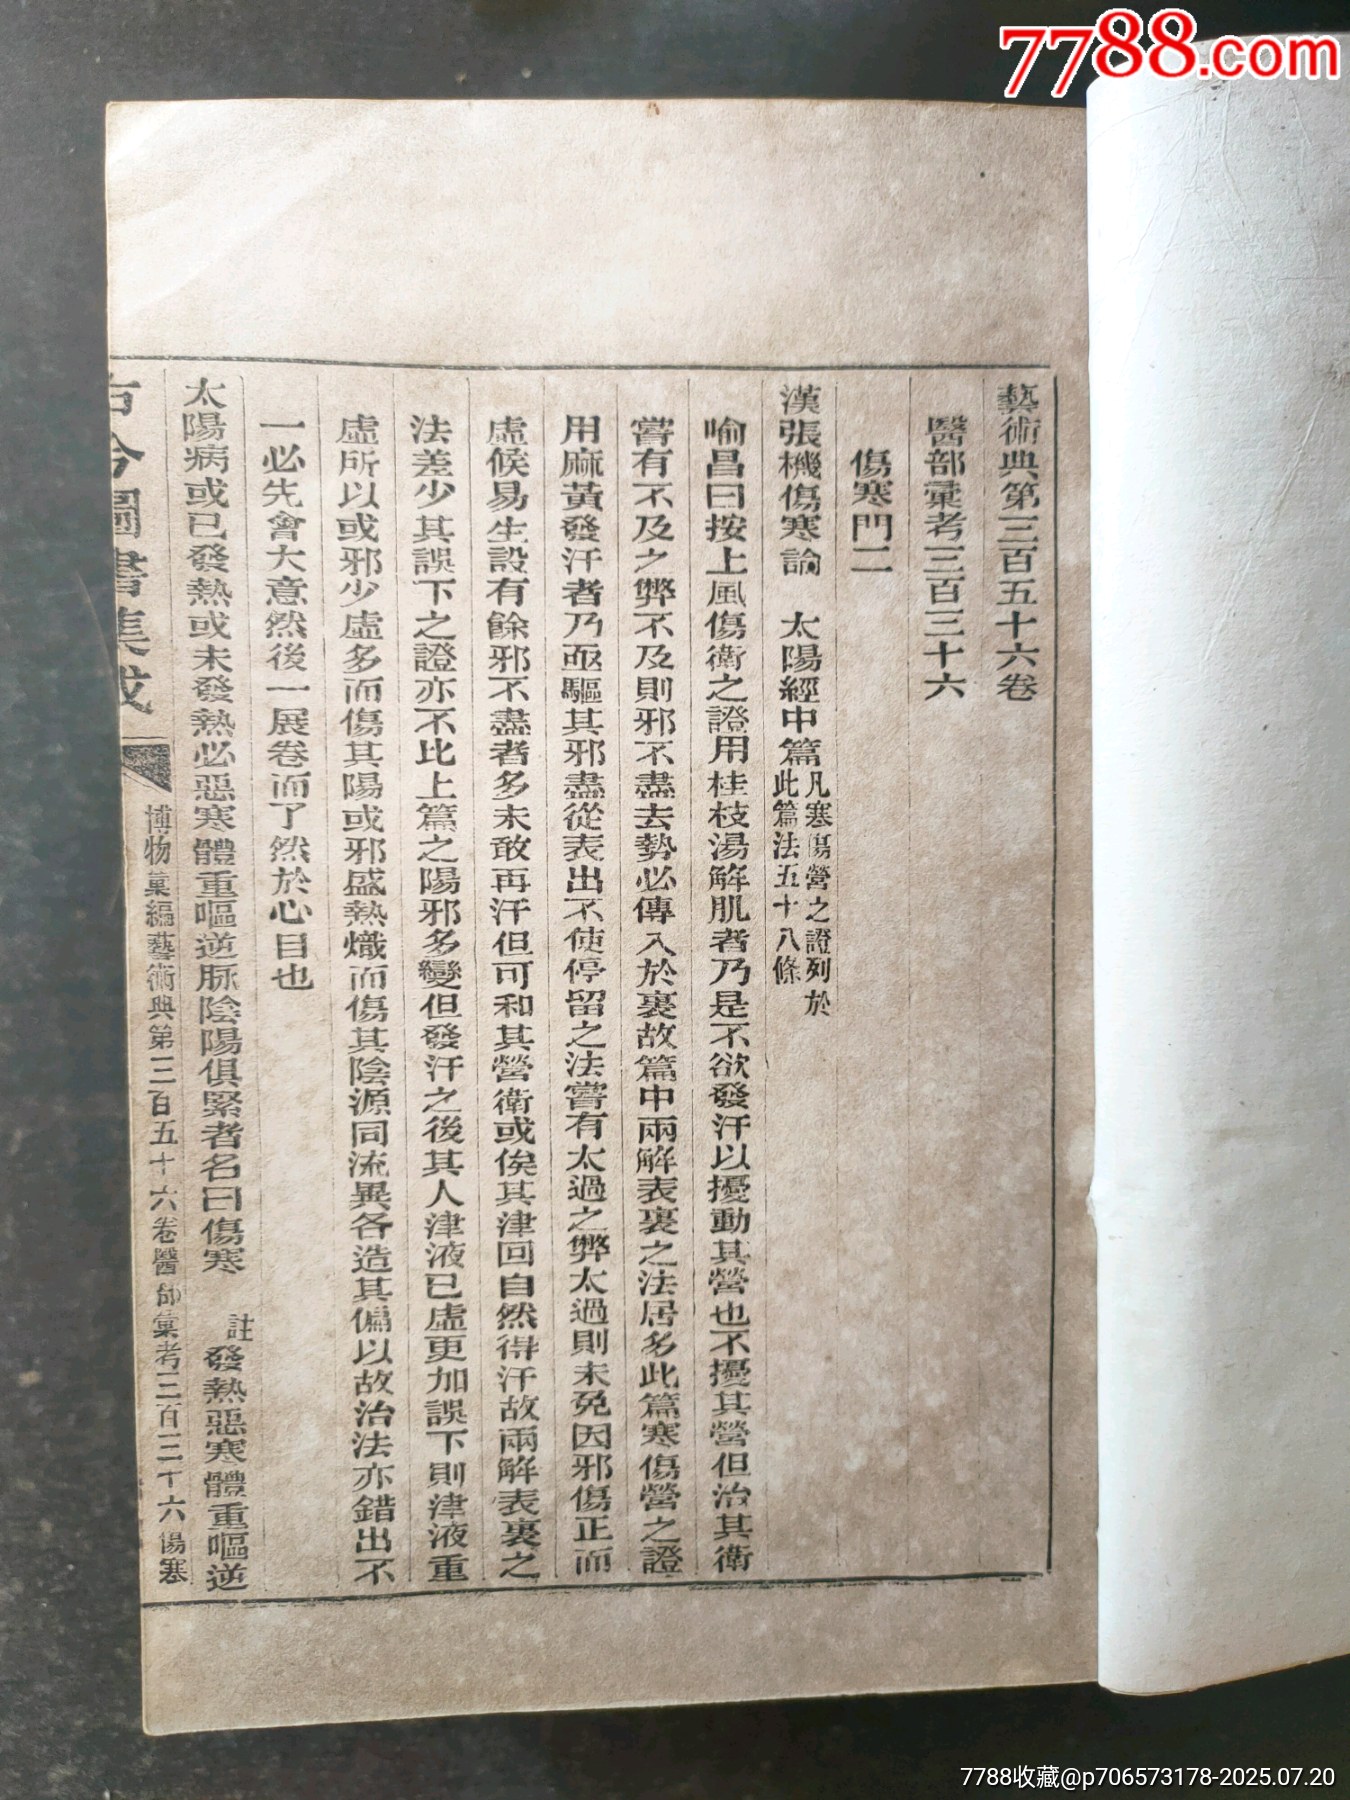 7788.com
藝術典第三百五十六卷
醫部彙考三百三十六
傷寒門二
漢張機傷寒論　太陽經中篇凡寒傷營之證列於
此篇法五十八條
喻昌曰按上風傷衛之證用桂枝湯解肌者乃是不欲發汗以擾動其營也不擾其營但治其衛
嘗有不及之弊不及則邪不盡去勢必傳入於裏故篇中兩解表裏之法居多此篇寒傷營之證
用麻黃發汗者乃亟驅其邪盡從表出不使停留之法嘗有太過之弊太過則未免因邪傷正而
虛候易生設有餘邪不盡者多未敢再汗但可和其營衛或俟其津回自然得汗故兩解表裏之
法差少其誤下之證亦不比上篇之陽邪多變但發汗之後其人津液已虛更加誤下則津液重
虛所以或邪少虛多而傷其陽或邪盛熱熾而傷其陰源同流異各造其偏以故治法亦錯出不
一必先會大意然後一展卷而了然於心目也
太陽病或已發熱或未發熱必惡寒體重嘔逆脈陰陽俱緊者名曰傷寒　註發熱惡寒體重嘔逆
古今圖書集成　博物彙編藝術典第三百五十六卷醫部彙考三百三十六傷寒
7788收藏@p706573178-2025.07.20